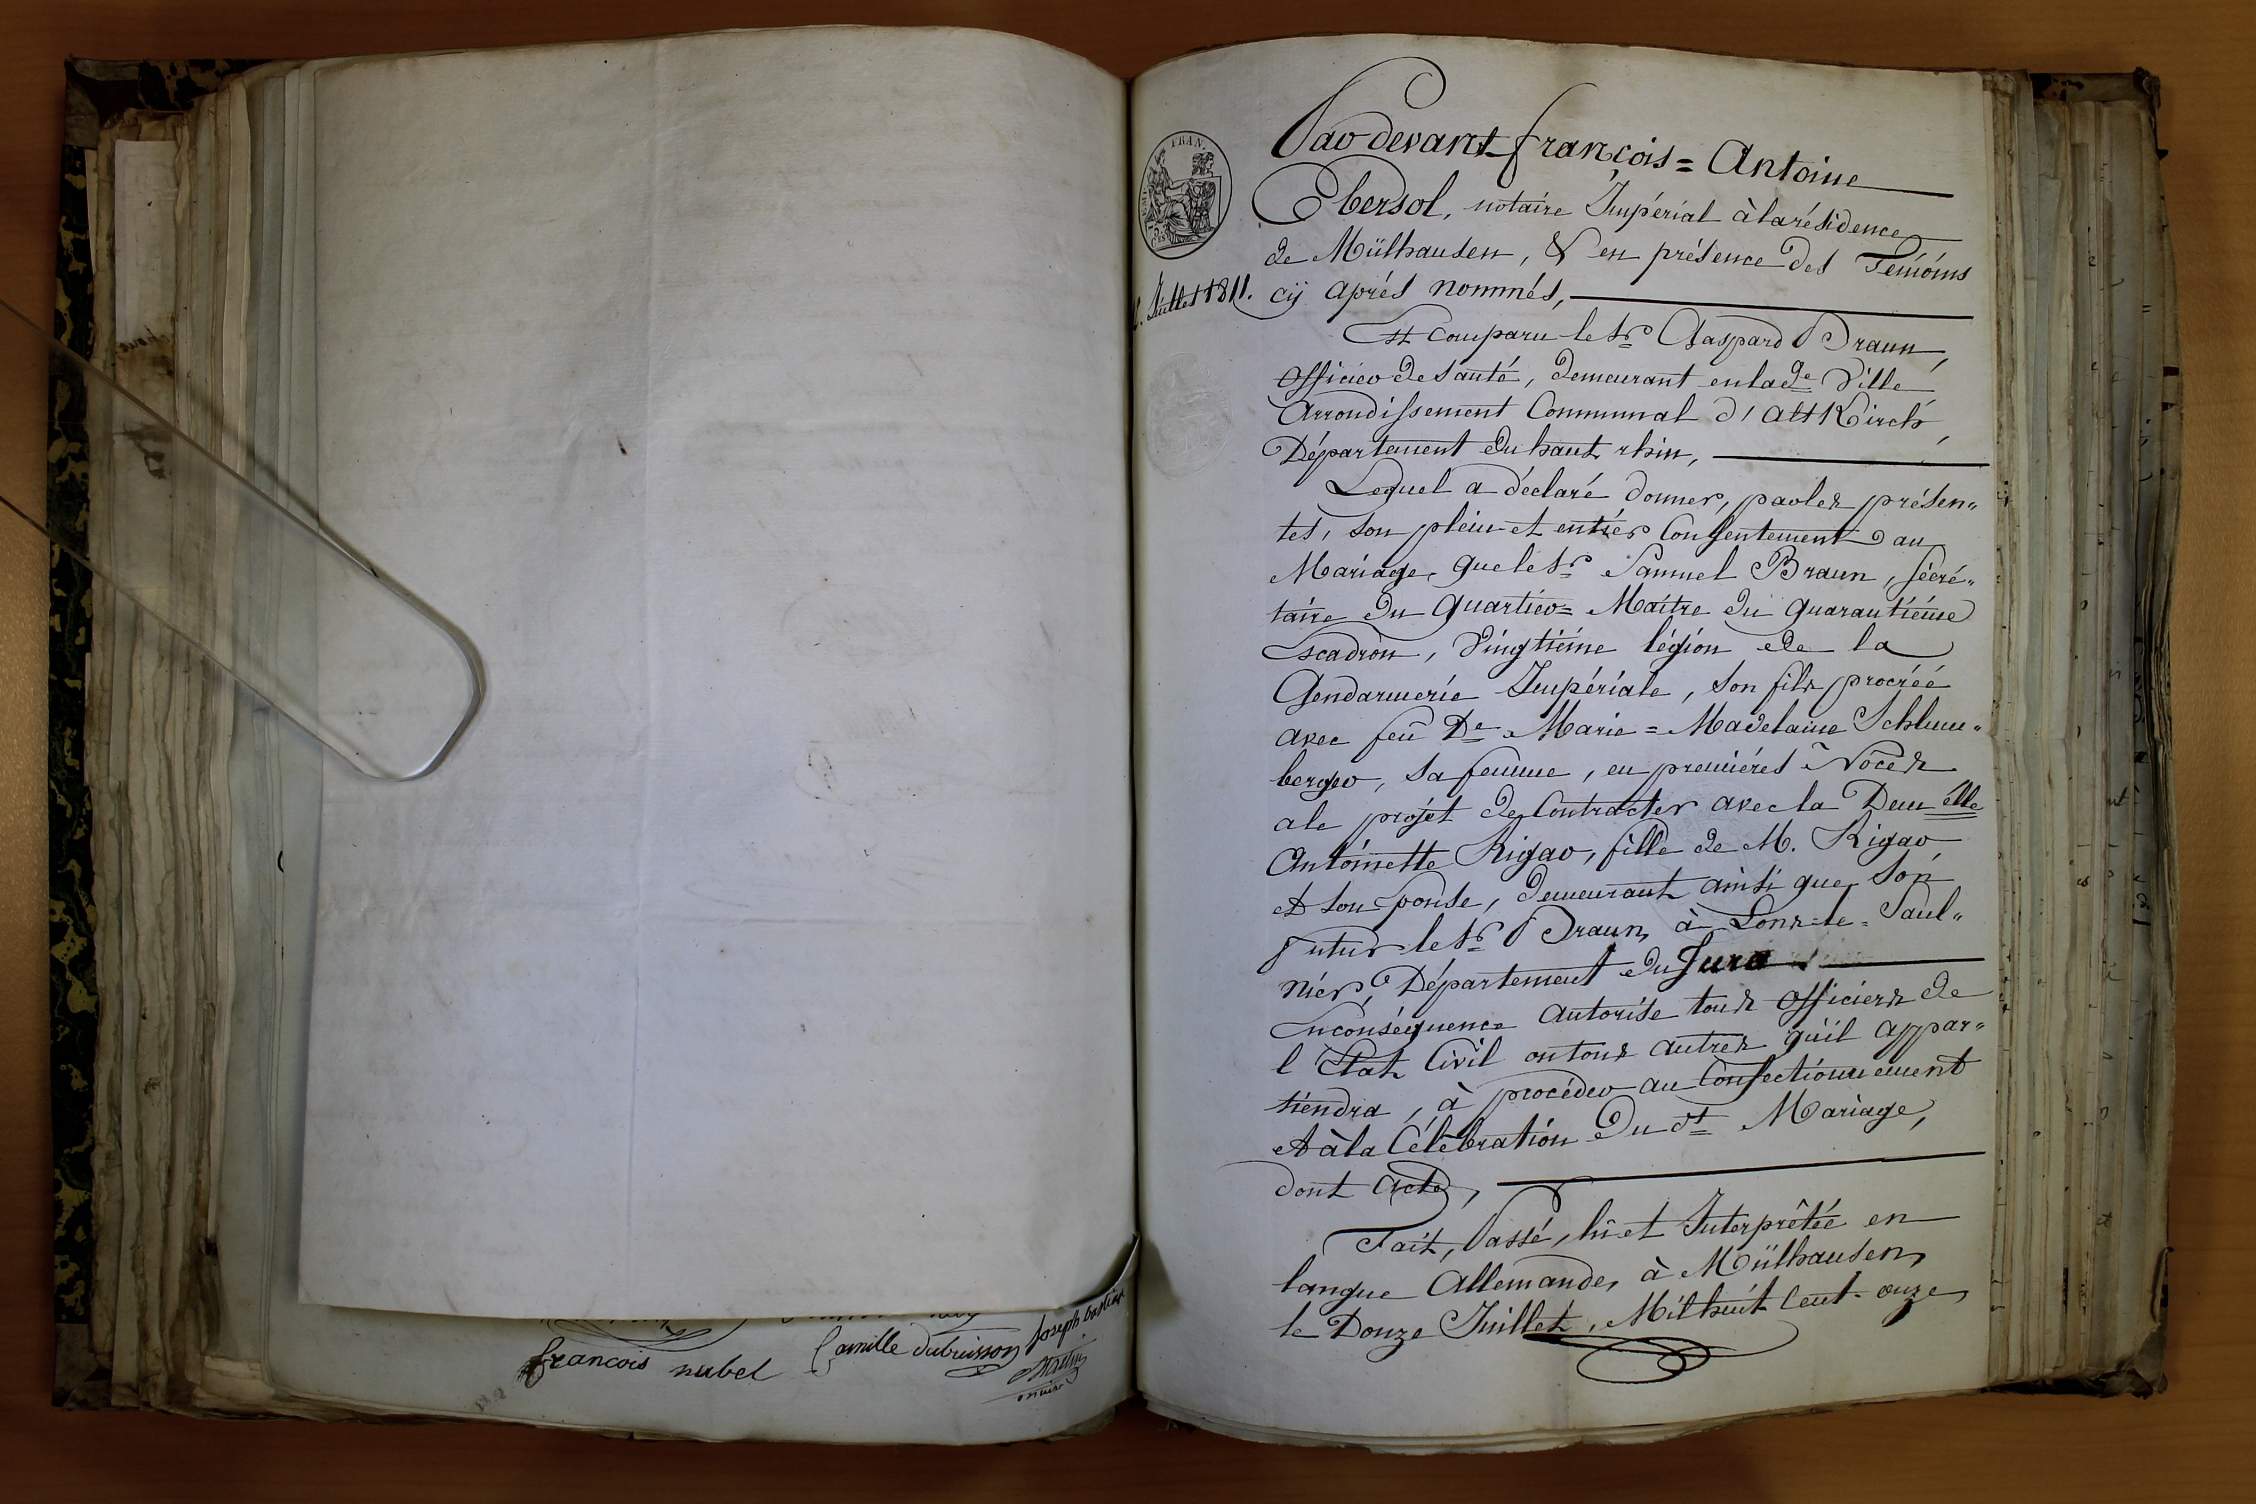 francois nubel
Camille dubuisson
Joseph
Par devant françois = Antoine
Ebersol, notaire Impérial à la résidence
de Mülhausen, & en présence des Témoins
cÿ aprés nommés,
Juillet 1811.
Est comparu le Sr. Gaspard Braun,
Officier de Santé, demeurant en la de. Ville
Arrondissement Communal d'altKirch,
Département du haut rhin,
Lequel a déclaré donner, par les présen„
tes, son plein et entier Consentement au
Mariage, que le Sr. Samuel Braun, secré„
taire du quartier = Maitre du quarantiéme
Escadron, Vingtiéme légion de la
Gendarmerie Impériale, son fils procréé
avec feu De. Marie = Madelaine Schlum„
berger, sa femme, en premiéres Nôces
a le projet de Contracter avec la Demelle
Antoinette Rigar, fille de M. Rigar
et son Epouse, demeurant ainsi que son
futur le Sr. Braun, à Lons = le = Saul„
nier, Département du Jura
En conséquence autorise tous officiers de
l'Etat Civil ou tous autres qu'il appar„
tiendra, à procéder au Confectionnement
et à la Célèbration du dt. Mariage,
dont acte,
Fait, Passé, lu et Interprêtée en
langue Allemande, à Mülhausen,
le Douze Juillet, Mil huit Cent onze